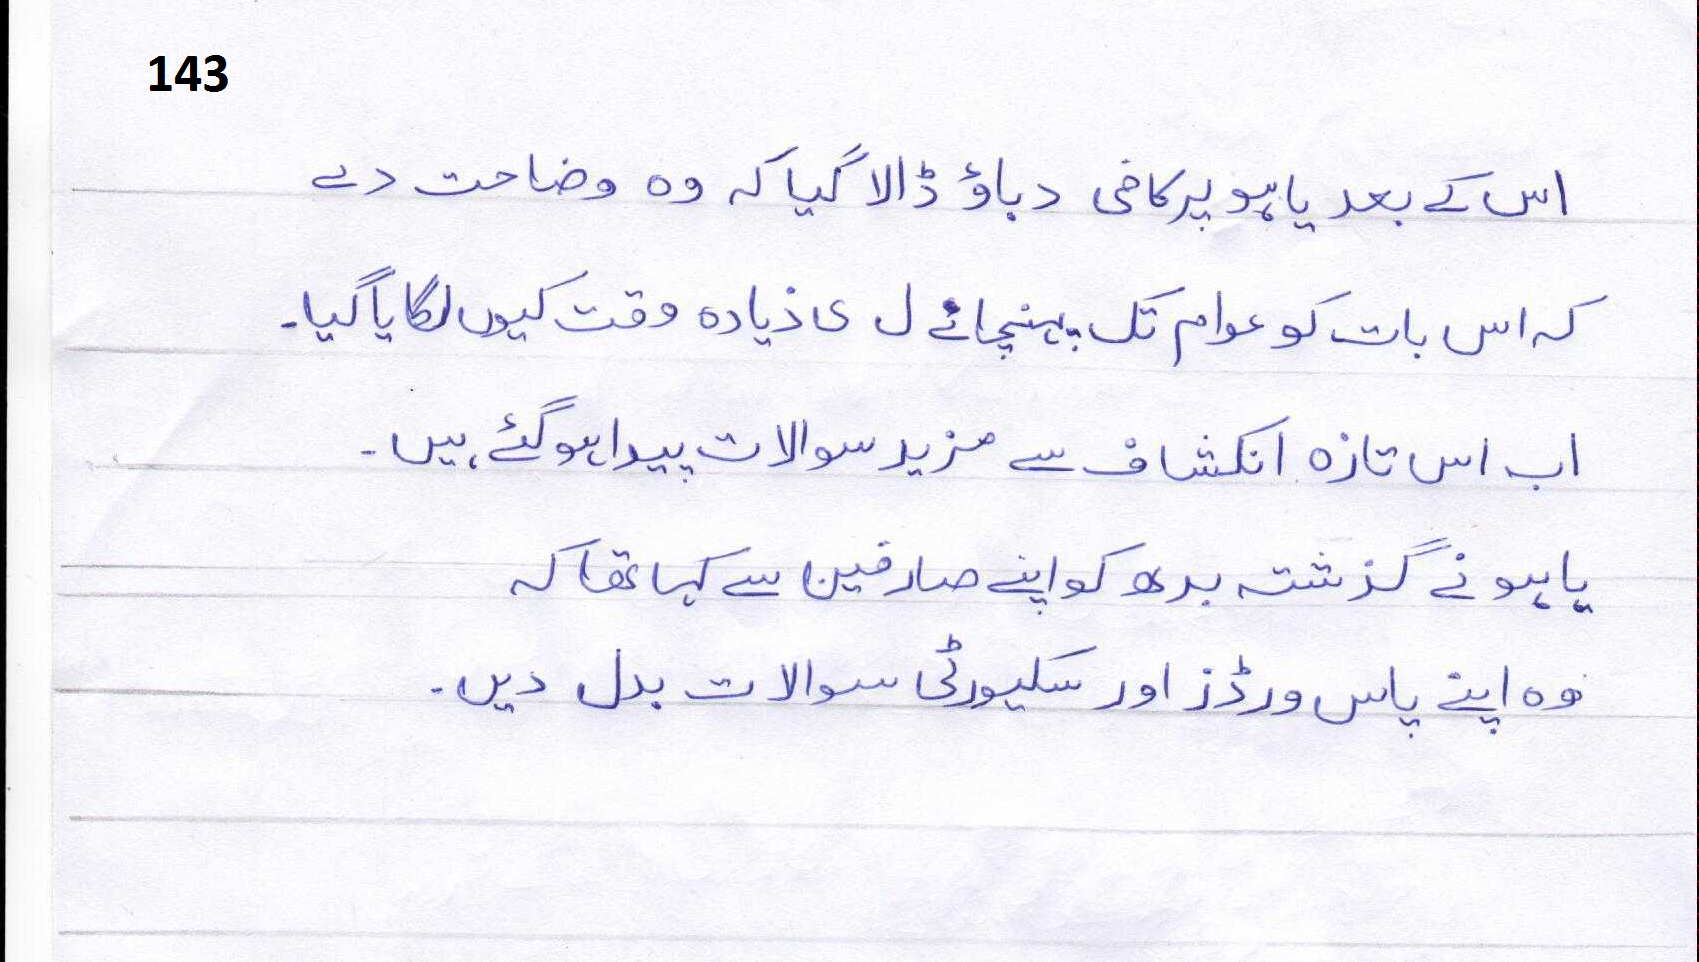 143
اس کے بعد یاہو پر کافی دباؤ ڈالا گیا کہ وہ وضاحت دے
کہ اس بات کو عوام تک پہنچائے ل ی ذیادہ وقت کیوں لگایا گیا۔
اب اس تازہ انکشاف سے مزید سوالات پیدا ہو گئے ہیں۔
یاہو نے گذشتہ بدھ کو اپنے صارفین سے کہا تھا کہ
وہ اپنے پاس ورڈز اور سکیورٹی سوالات بدل دیں۔